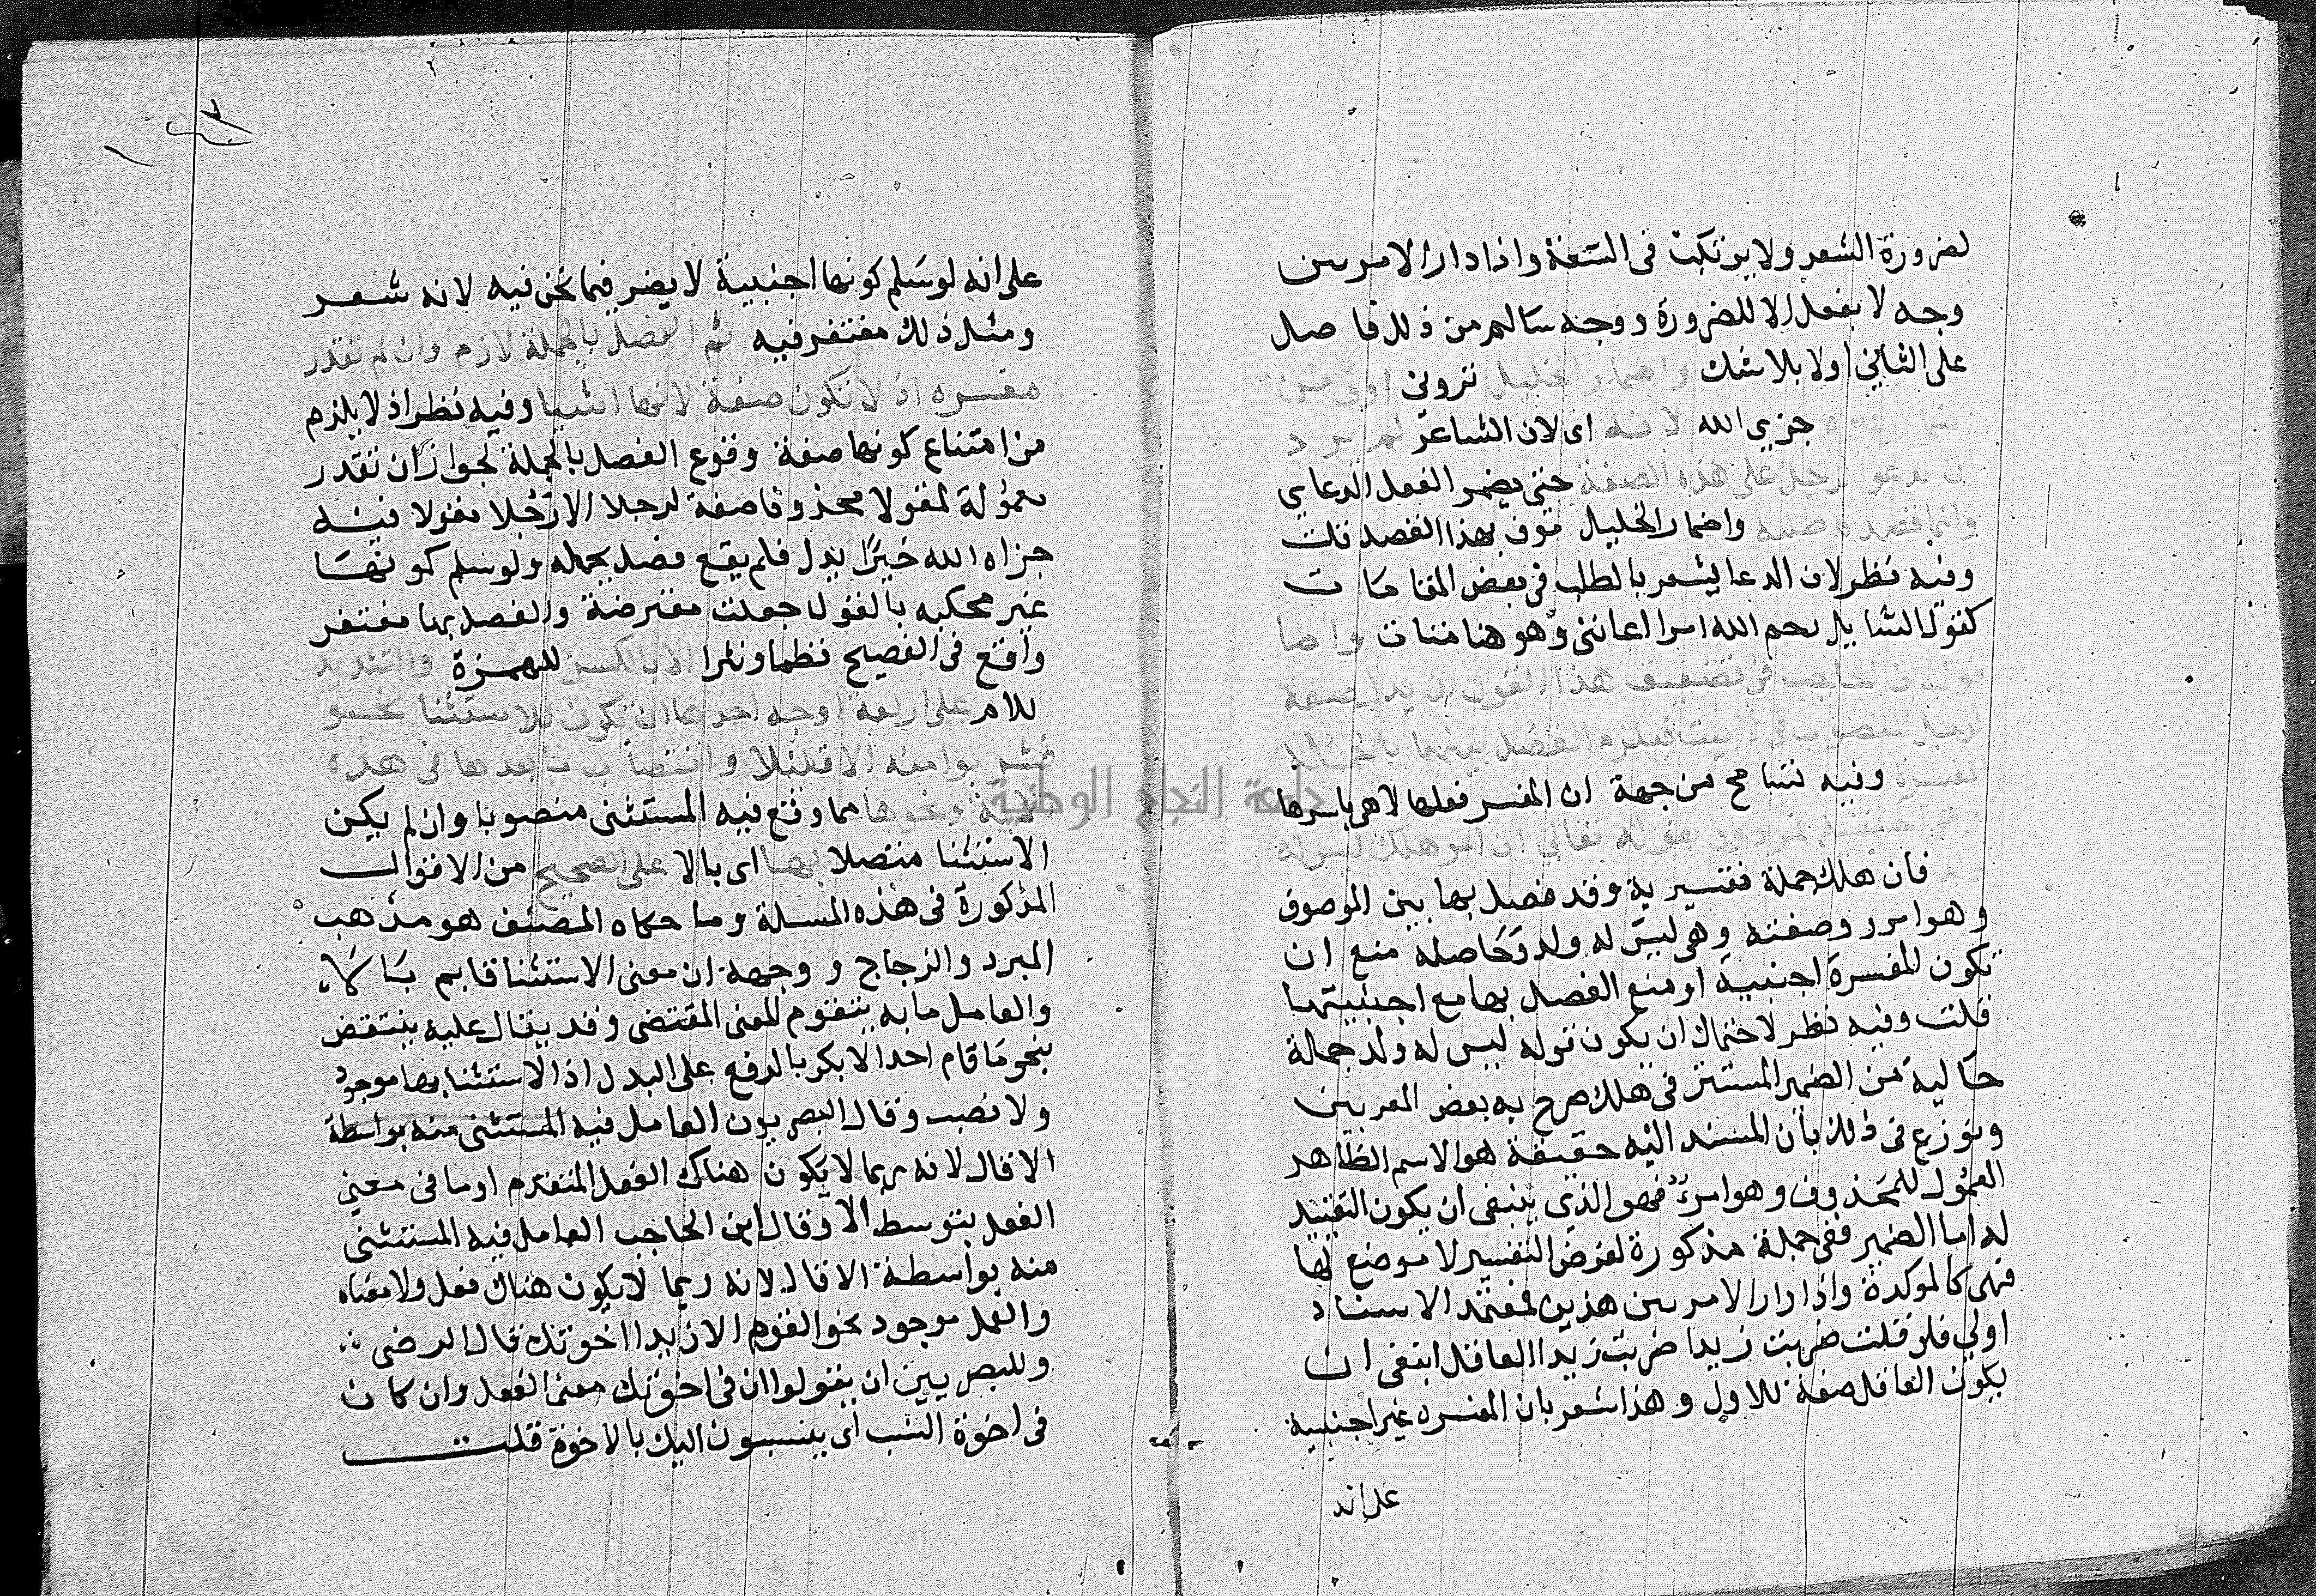 لضرورة الشعر ولا يرتكب فى السعة واذا دار الامر بين
وجه لا يفعل الا للضرورة ووجه سالم من ذلك فا صل
على الثانى اولا بلا شك واضمار الخليل تروني اولى من
اضمار غيره جزي الله لانه اى لان الشاعر لم يرد
ان يدعوا لرجل على هذه الصفة حتى يضمر الفعل الدعاي
وانما قصده طلبه واضمار الخليل موف بهذا القصد قلت
وفيه نظر لان الدعا يشعر بالطلب فى بعض المقامات
كقول السايل رحم الله امرا اعاننى وهو هنا منات واما
قول ابن الحاجب فى تضعيف هذا القول ان يدل صفة
لرجل المنصوب فى البيت فيلزم الفصل بينهما بالجملة
المفسرة وفيه تسامح من جهة ان المفسر فعلها لا هى باسرها
وهى اجنبية مردود بقوله تعالى ان امرو هلك ليس له
ولد فان هلك جملة تفسيرية وقد فصل بها بين الموصوف
وهو امرو وصفته وهى ليس له ولد وحاصله منع ان
تكون المفسرة اجنبية او منع الفصل بها مع اجنبيتها
قلت وفيه نظر لاحتمال ان يكون قوله ليس له ولد جملة
حالية من الضمير المستتر فى هلك صرح به بعض المعربين
ونوزع فى ذلك بان المسند اليه حقيقة هو الاسم الظاهر
المعمول للمحذوف وهو امرؤ فهو الذى ينبغى ان يكون التقييد
له اما الضمير ففى جملة مذكورة لغرض التفسير لا موضع لها
فهى كالموكدة واذا دار الامر بين هذين فمعتمد الاسناد
اولى فلو قلت ضربت زيدا ضربت زيدا العاقل ابتغى ان
يكون العاقل صفة للاول وهذا مشعر بان المفسره غير اجنبية
على انه
على انه لو سلم كونها اجنبية لا يضر فيما نحن فيه لانه شعر
ومثل ذلك مغتفر فيه ثم الفصل بالجملة لازم وان لم تقدر
مفسره اذ لا تكون صفة لانها انشا وفيه نظر اذ لا يلزم
من امتناع كونها صفة وقوع الفصل بالجملة لجواز ان تقدر
معمولة لمقول محذوفا صفة لرجلا الا رجلا مقولا فيه
جزاه الله خيرًا يدل فلم يقع فصل بجمله ولو سلم كونها
غير محكيه بالقول جعلت معترضة والفصل بها مغتفر
واقع فى الفصيح نظما ونثرا الا بالكسر للهمزة والتشديد
للام على اربعة اوجه احدها ان تكون للاستثنا نحو
فشربوا منه الا قليلا وانتصاب ما بعدها فى هذه
الاية ونحوها مما وقع فيه المستثنى منصوبا وان لم يكن
الاستثنا متصلا بها اى بالا على الصحيح من الاقوال
المذكورة فى هذه المسلة وما حكاه المصنف هو مذهب
المبرد والزجاج ووجهه ان معنى الاستثنا قايم بالا
والعامل ما به يتقوم المعنى المقتضى وقد يقال عليه ينتقض
بنحو ما قام احد الا بكر بالرفع على البدل اذ الاستثنا بها موجود
ولا نصب وقال البصريون العامل فيه المستثنى منه بواسطة
الا قال لانه ربما لا يكون هناك الفعل المتقدم او ما فى معنى
الفعل بتوسط الا وقال ابن الحاجب العامل فيه المستثنى
منه بواسطة الا قال لانه ربما لا يكون هناك فعل ولا معناه
والعمل موجود نحو القوم الا زيدا اخوتك قال الرضى
وللبصريين ان يقولوا ان فى اخوتك معنى الفعل وان كان
فى اخوة النسب اى ينسبون اليك بالاخوة قلت
جامعة النجاح الوطنية